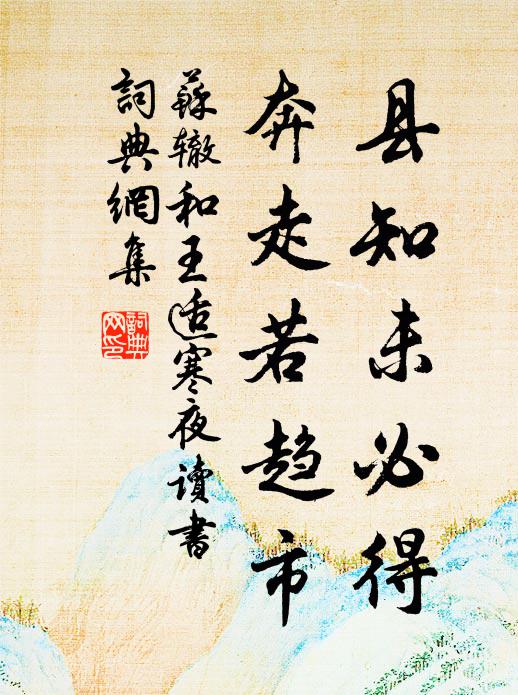 县知未必得
奔走若趋市
蘇辙和王适寒夜读書
詞典網集
詞典網印